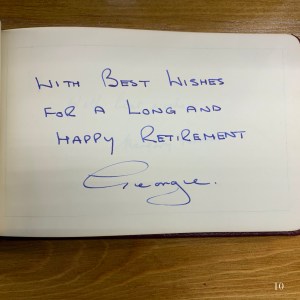 WITH BEST WISHES
FOR A LONG AND
HAPPY RETIREMENT
George.
10